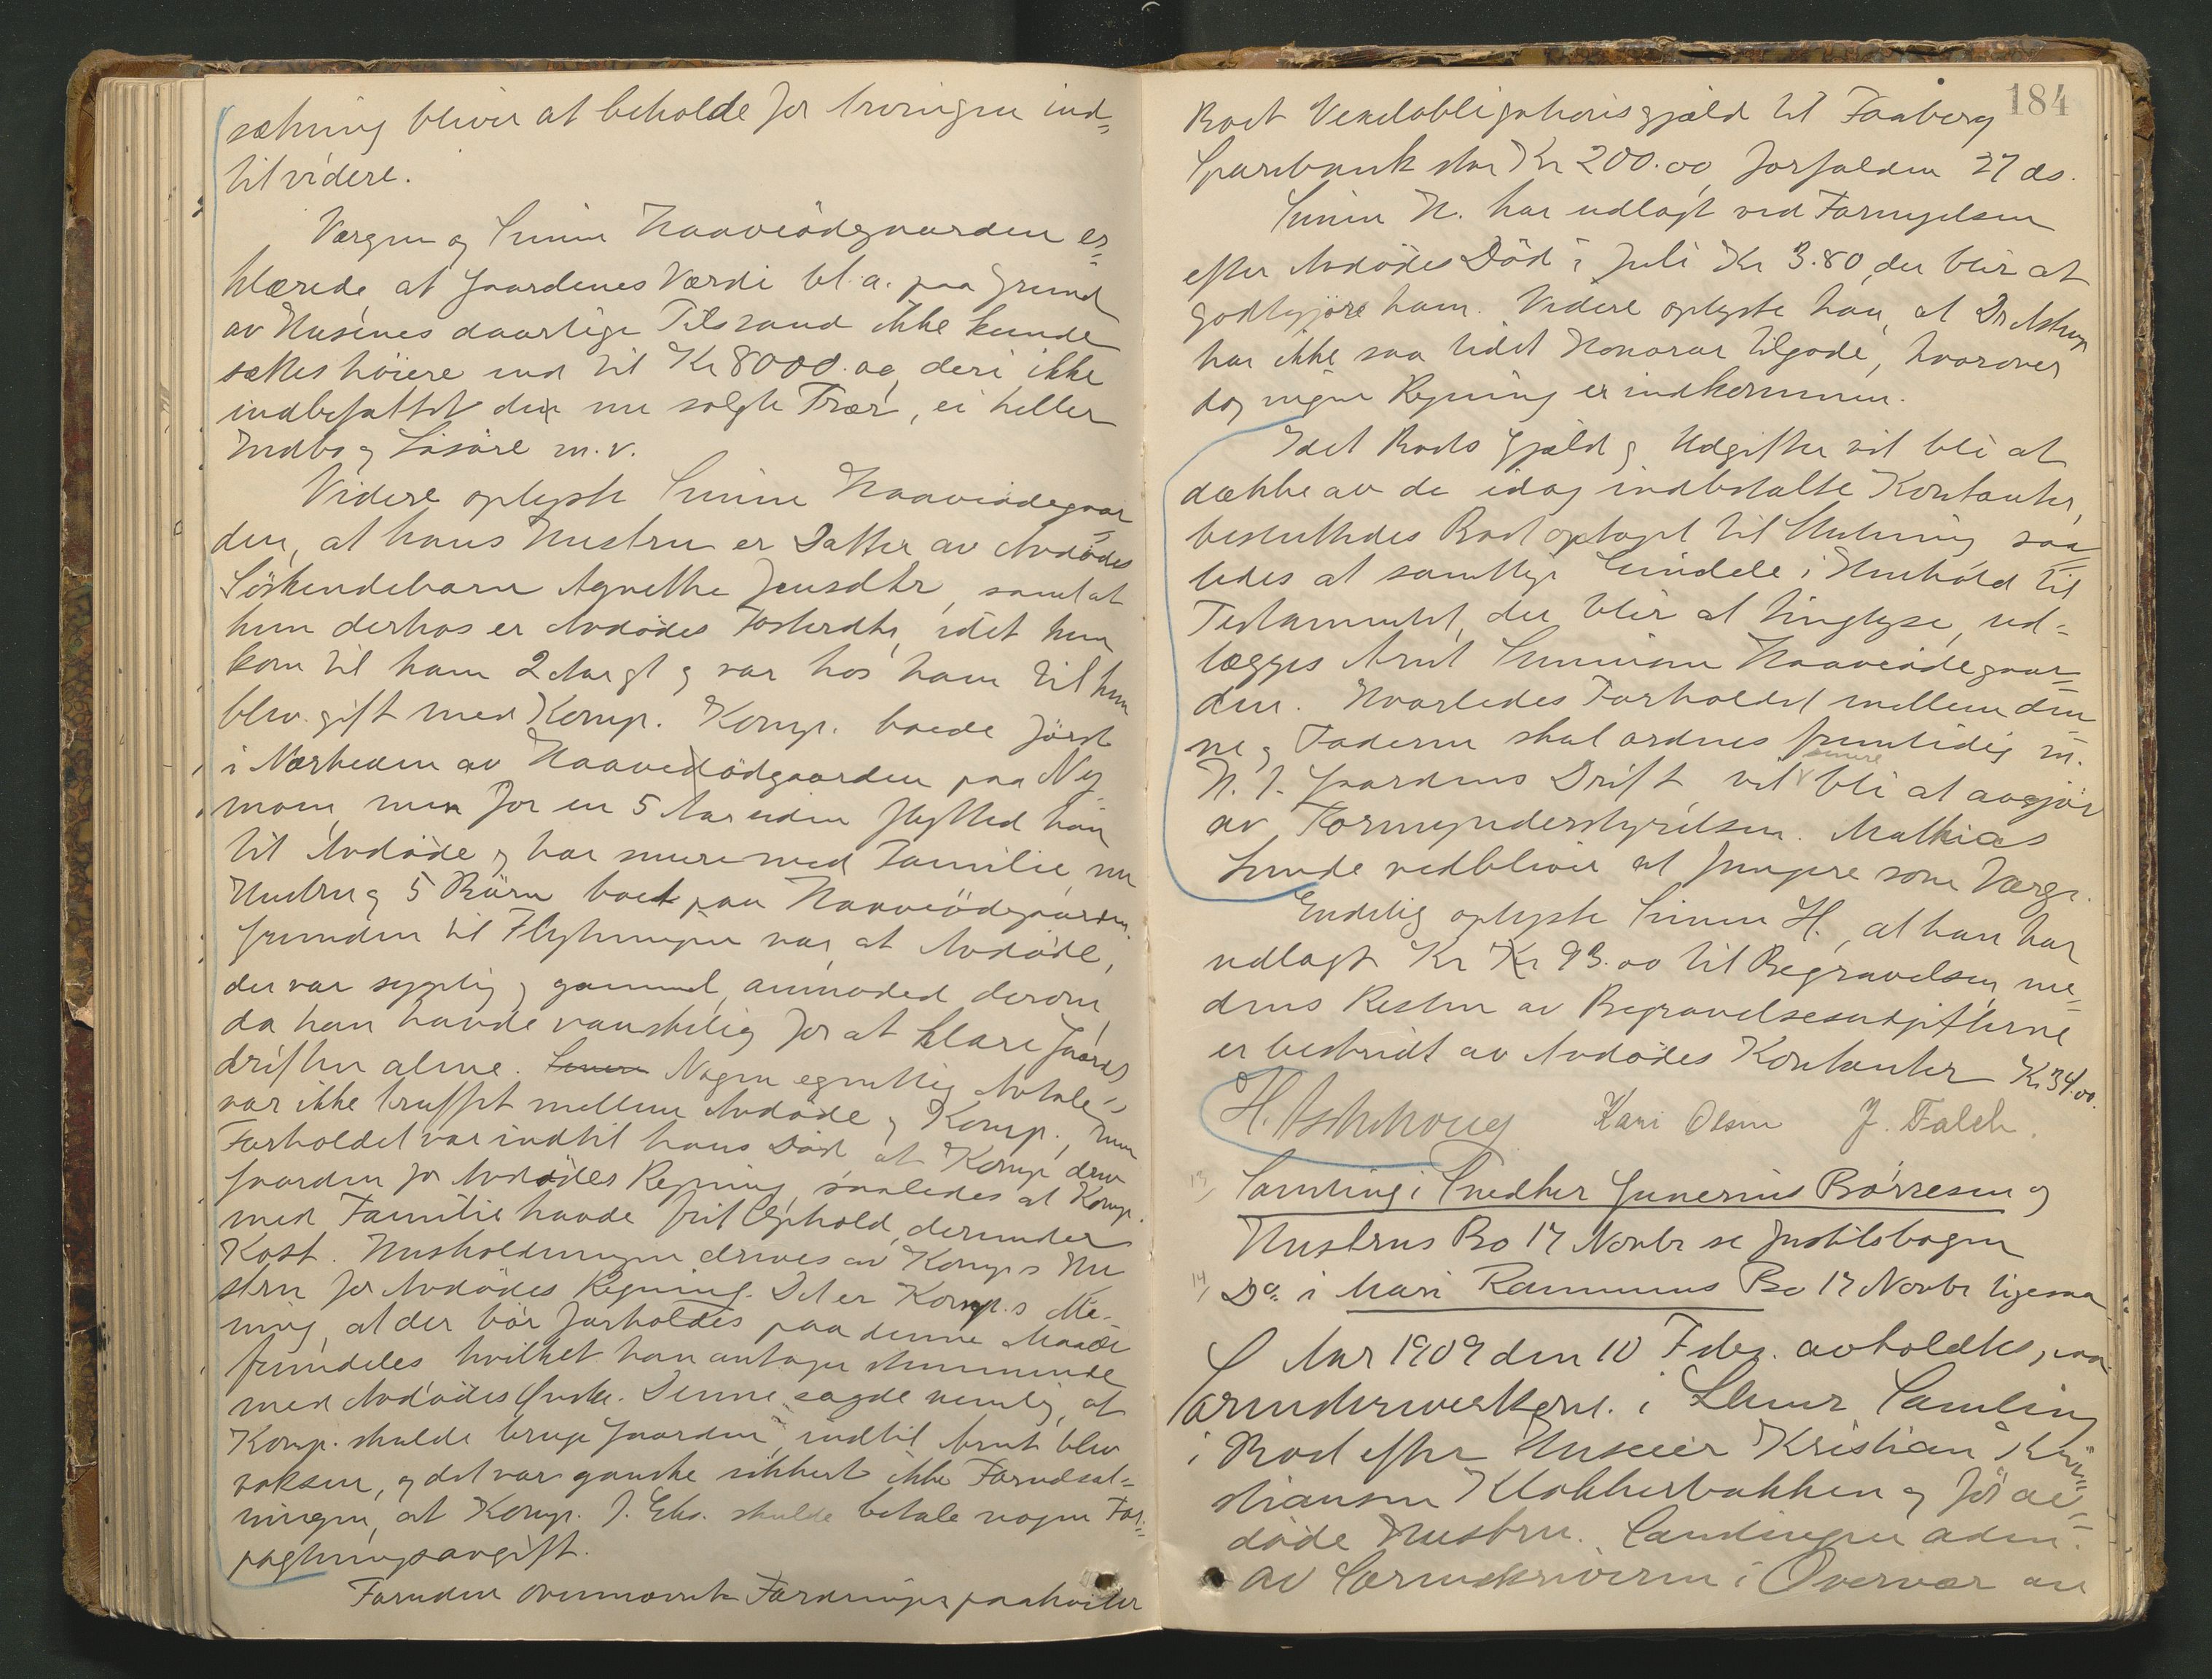 sætning bliver at beholde for Arvingen ind=
til videre.
Værgen og Simen Haaveødegaarden er=
klærede, at Gaardenes Værdi bl. a. paa Grund
av Husenes daarlige Tilstand ikke kunde
sættes høiere end til Kr 8000.00, deri ikke
indbefattet de nu solgte Trær, ei heller
Indbo og Løsøre m. v.
Videre oplyste Simen Haaveødegaar=
den, at hans Hustru er Datter av Avdødes
Søskendebarn Agnethe Jensdtr, samt at
hun derhos er Avdødes Fosterdtr, idet hun
kom til ham 2 Aar gl og var hos ham til hun
blev gift med Komp. Komp. boede først
i Nærheden av Haaveødegaarden paa Ny
moen, men for en 5 Aar siden flytted han
til Avdøde og har senere med Familie, nu
Hustru og 5 Børn boet paa Haaveødegaarden.
Grunden til Flytningen var, at Avdøde,
der var sygelig og gammel, anmoded derom,
da han havde vanskelig for at klare Gaards
driften alene. Nogen egentlig Avtale
var ikke truffet mellem Avdøde og Komp., men
Forholdet var indtil hans Død, at Komp. drev
Gaarden for Avdødes Regning, saaledes at Komp.
med Familie havde frit Ophold, derunder
Kost. Husholdningen drives av Komp.s Hu
stru for Avdødes Regning. Det er Komp.s Me=
ning, at der bør forholdes paa denne Maade
fremdeles hvilket han antager stemmende
med Avdødes Ønske. Denne sagde nemlig, at
Komp. skulde bruge Gaarden, indtil Arnt blev
voksen, og det var ganske sikkert ikke Forudsæt=
ningen, at Komp. f. Eks. skulde betale nogen For=
pagtningsavgift.
Foruden ovennævnte Fordringer paahviler
184
Boet Vexelobligationsgjæld til Faaberg
Sparebank stor Kr 200.00 forfalden 27 ds.
Simen H. har udlagt ved Fornyelsen
efter Avdødes Død i Juli Kr 3.80, der blir at
godtgjøre ham. Videre oplyste han, at Dr Astrup
har ikke saa lidet Honorar tilgode, hvorover
dog ingen Regning er indkommen.
Idet Boets Gjæld og Udgifter vil bli at
dække av de idag indbetalte Kontanter,
besluttedes Boet optaget til Slutning saa=
ledes at samtlige Eiendele i Henhold til
Testamentet, der blir at tinglyse, ud=
lægges Arnt Simensen Haaveødegaar=
den. Hvorledes Forholdet mellem den
ne og Faderen skal ordnes fremtidig m.
H. t. Gaardens Drift vil senere bli at avgjøre
av Formynderstyrelsen. Mathias
Lunde vedbliver at fungere som Værge.
Endelig oplyste Simen H., at han har
udlagt Kr Kr 93.00 til Begravelsen, me=
dens Resten av Begravelsesudgifterne
er bestridt av Avdødes Kontanter Kr 34.00.
H. Aschehoug Kari Olsen J. Falch.
13) Samling i Snedker Gunerius Børresen og
Hustrus Bo 17 Novbr se Justitsbogen
14) Do. i Mari Rammens Bo 17 Novbr ligesaa
Aar 1909 den 10 Febr. avholdtes paa
Sorenskriverkont. i Lhmr Samling
i Boet efter Huseier Kristian Kri=
stiansen Klokkerbakken og før av=
døde Hustru. Samlingen adm.
av Sorenskriveren i Overvær av